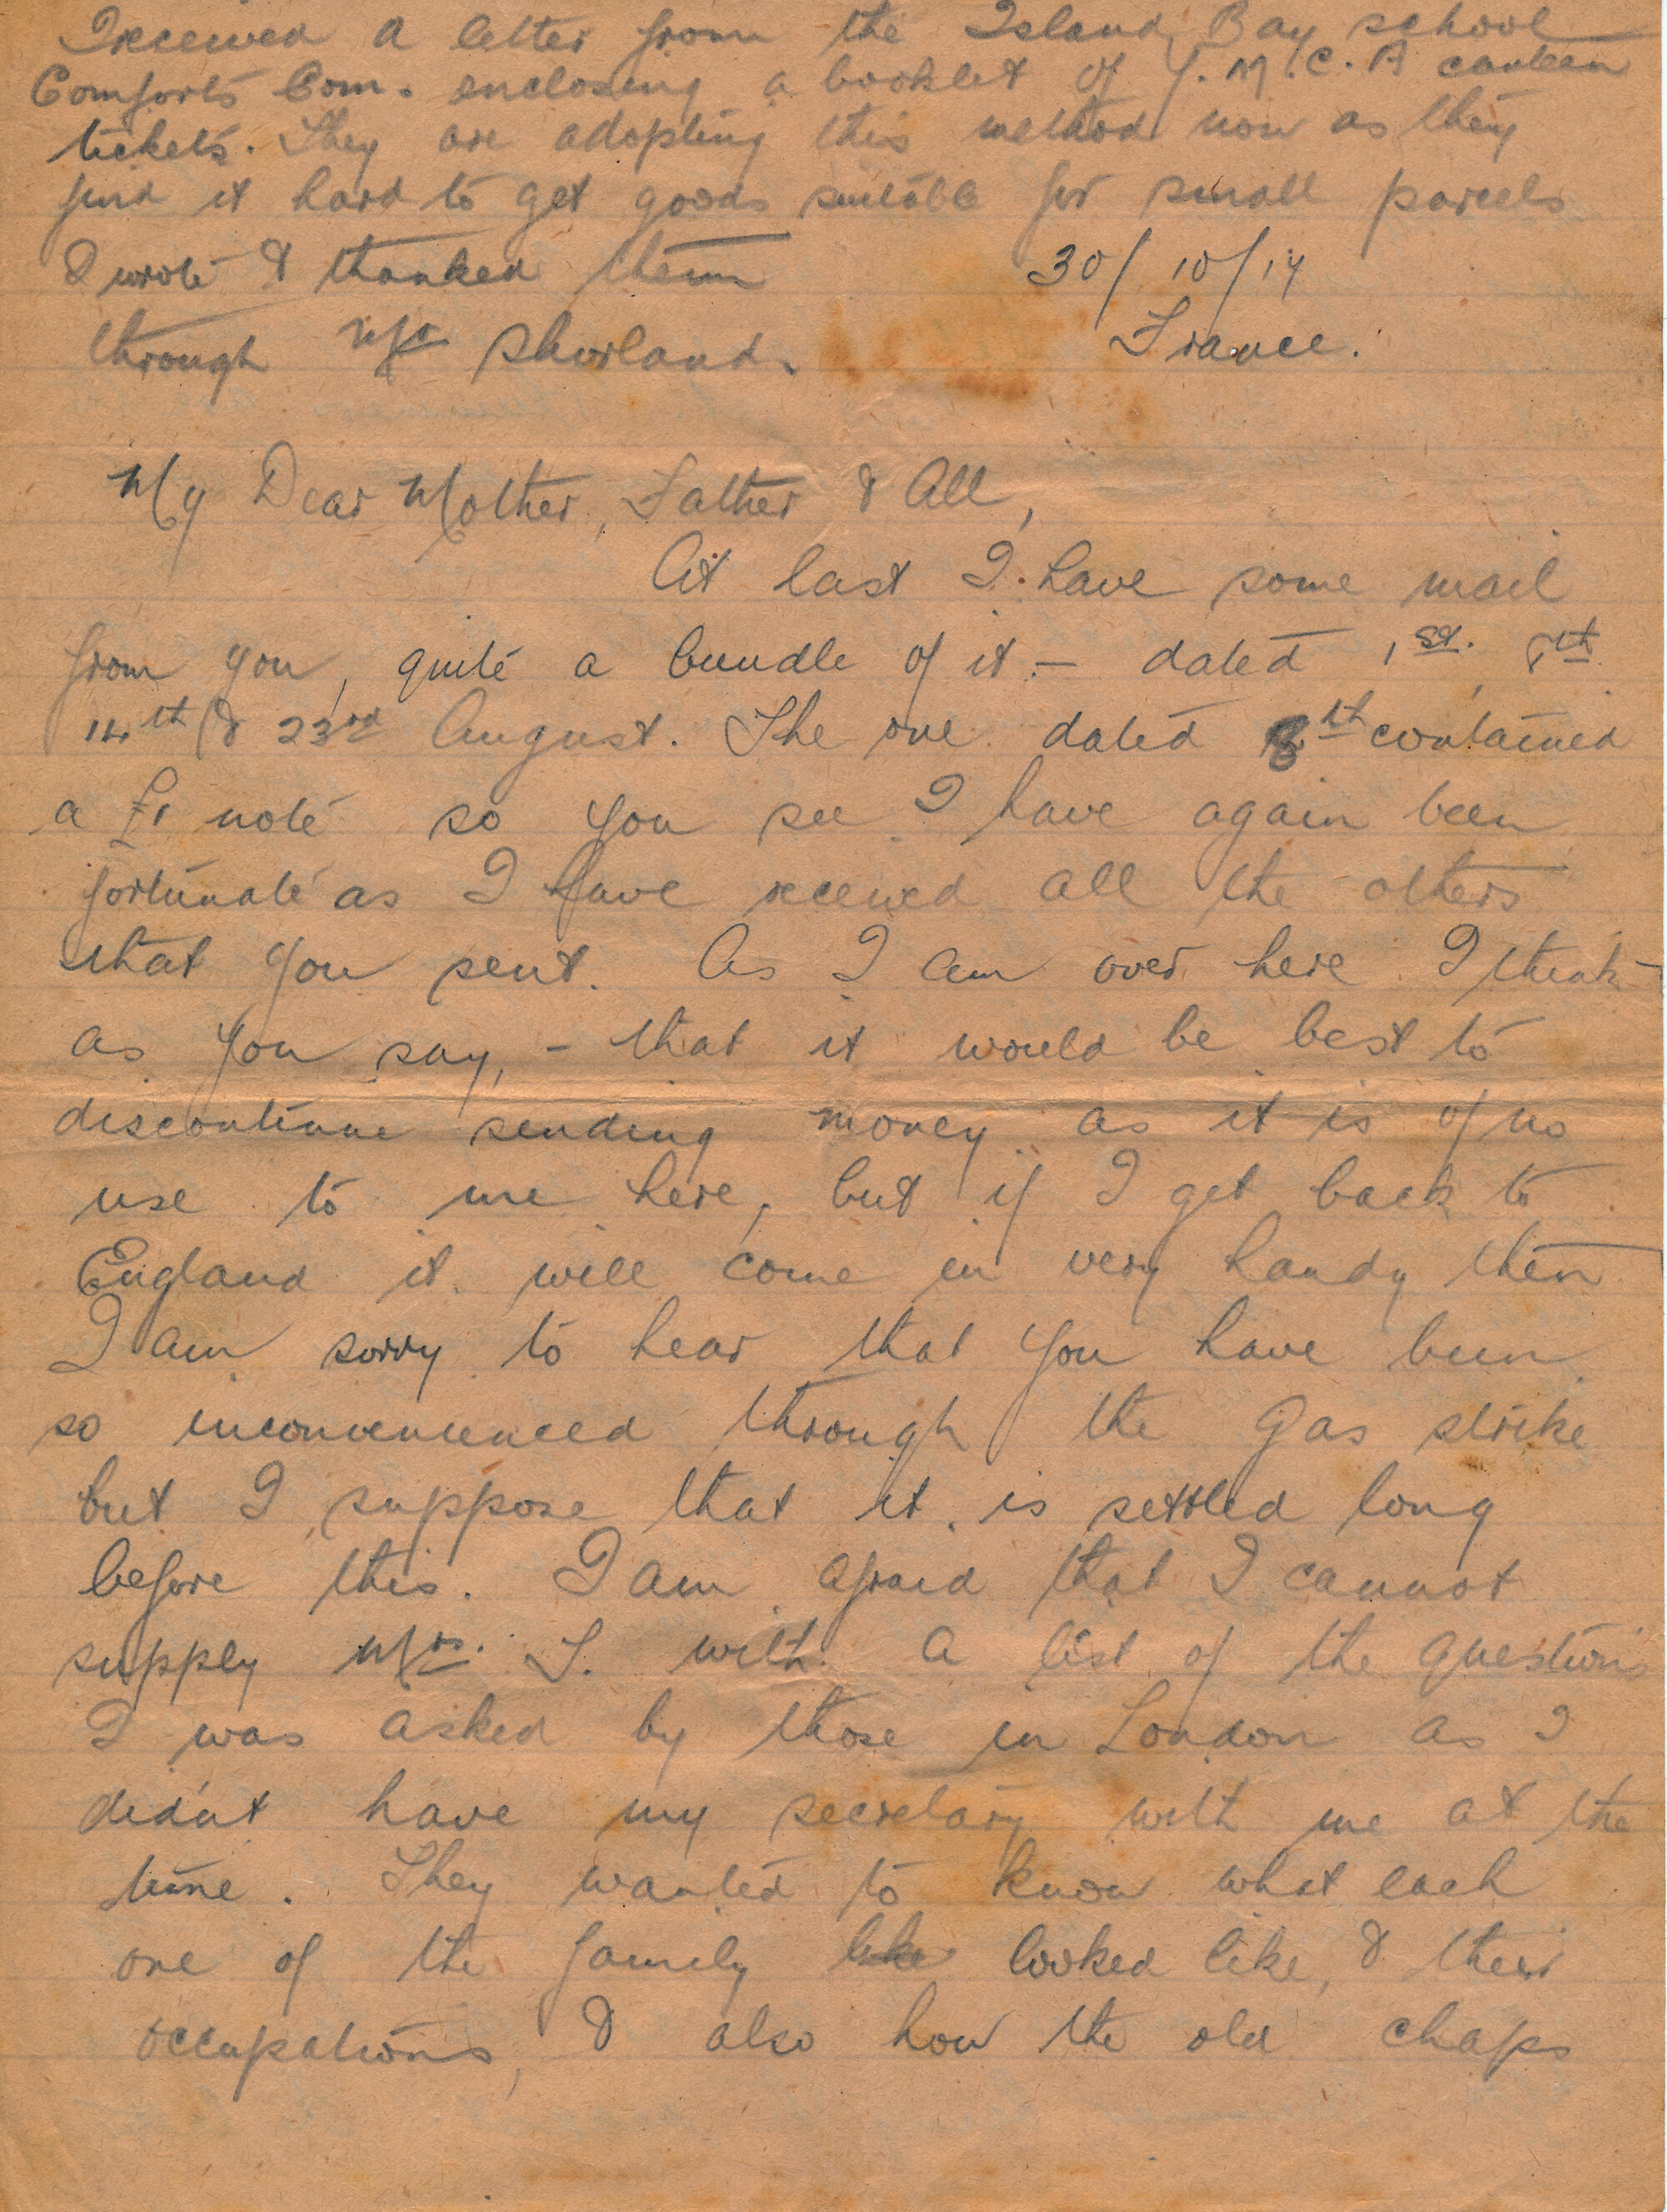 I received a letter from the Island Bay school
Comforts Com. enclosing a booklet of Y.M.C.A canteen
tickets. They are adopting this method now as they
find it hard to get goods suitable for small parcels
I wrote & thanked them
through Mr Shorland.
30/10/17
France.
My Dear Mother, Father & All,
At last I have some mail
from you, quite a bundle of it - dated 1st. 8th
14th & 23rd August. The one dated 8th contained
a £1 note so you see I have again been
fortunate as I have received all the others
that you sent. As I am over here I think -
as you say, - that it would be best to
discontinue sending money as it is of no
use to me here, but if I get back to
England it will come in very handy then
I am sorry to hear that you have been
so inconvenienced through the Gas strike
but I suppose that it is settled long
before this. I am afraid that I cannot
supply Mrs. S. with a list of the questions
I was asked by those in London as I
didn't have my secretary with me at the
time. They wanted to know what each
one of the family like looked like, & their
occupations, & also how the old chaps